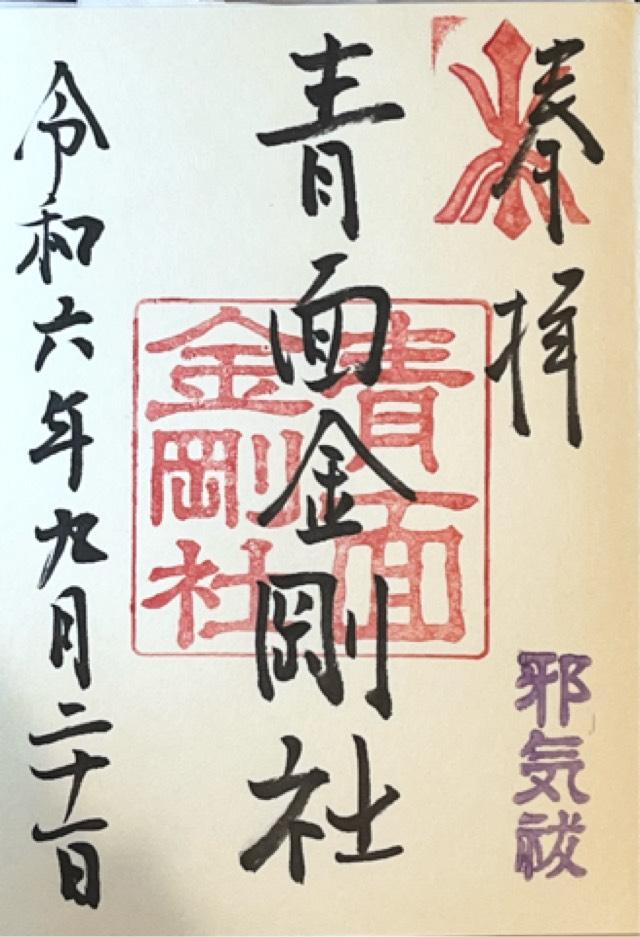 奉拝
邪気祓
青面金剛社
青面金剛社
令和六年九月二十一日